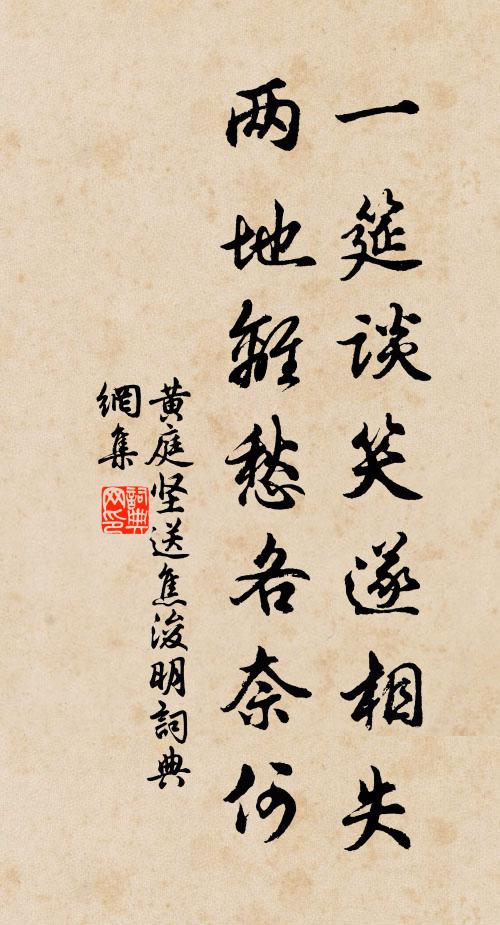 一筵谈笑遂相失
两地離愁各奈何
黄庭坚送焦浚明詞典
網集
詞典
网印